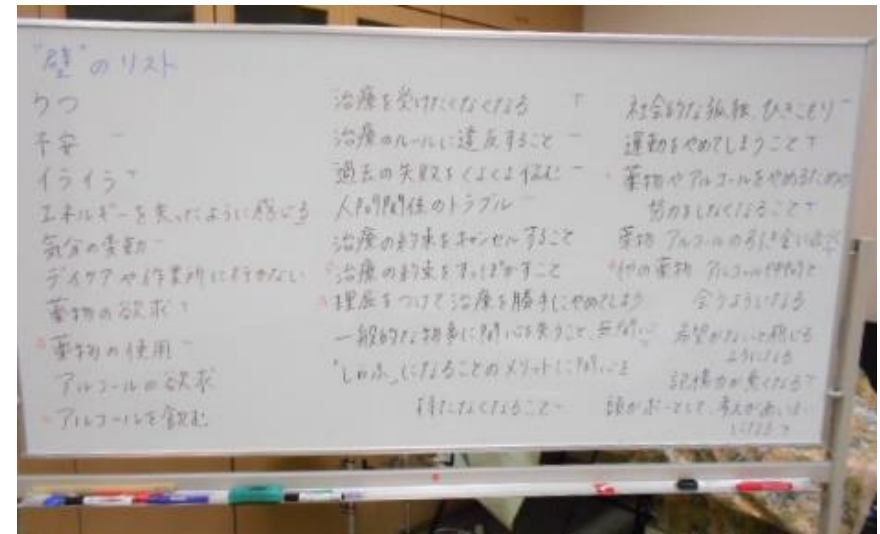 "壁"のリスト
うつ
不安
イライラ
エネルギーを失ったように感じる
気分の変動
デイケアや作業所に行かない
薬物の欲求
薬物の使用
アルコールの欲求
アルコールを飲む
治療を受けたくなくなる
治療のルールに違反すること
過去の失敗をくよくよ悩む
人間関係のトラブル
治療の約束をキャンセルすること
治療の約束をすっぽかすこと
理屈をつけて治療を勝手にやめてしまう
一般的な物事に関心を失うこと、無関心
「しらふ」になることのメリットに関心を
持たなくなること
社会的な孤独、ひきこもり
運動をやめてしまうこと
薬物やアルコールをやめるための
努力をしなくなること
薬物 アルコールの引き金に
他の薬物 アルコール仲間と
会うようになる
希望がないと感じる
ようになる
記憶力が悪くなる
頭がボーとして、考えがあいまい
になる